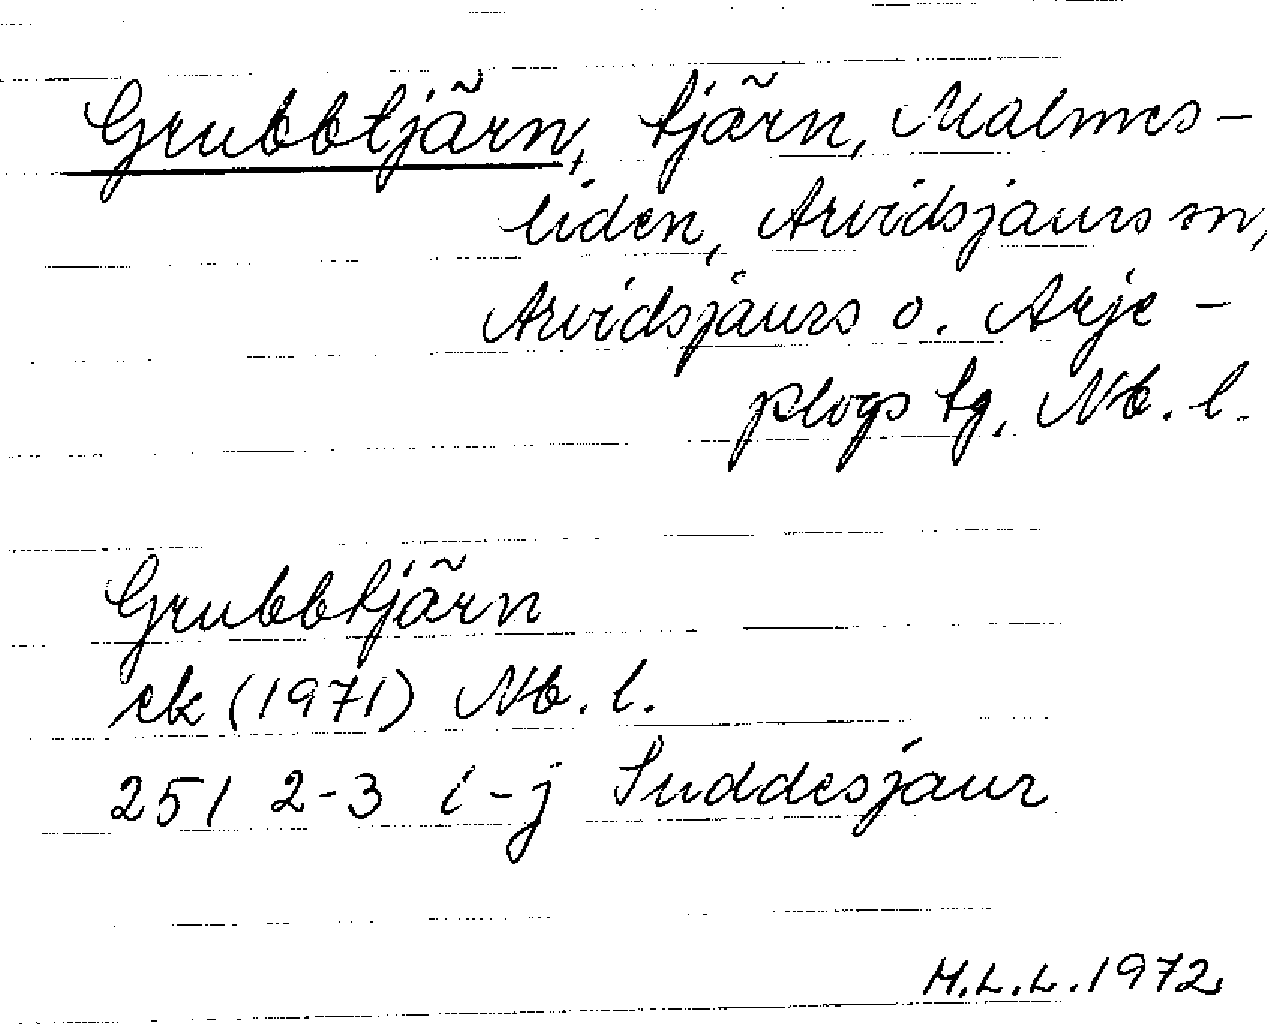 Grubbtjärn, tjärn, Malmes-
liden, Arvidsjaurs sn,
Arvidsjaurs o. Arje-
plogs tg, Nb. l.
Grubbtjärn
ek (1971) Nb. l.
251 2-3 i-j Suddesjaur
M.L.L. 1972